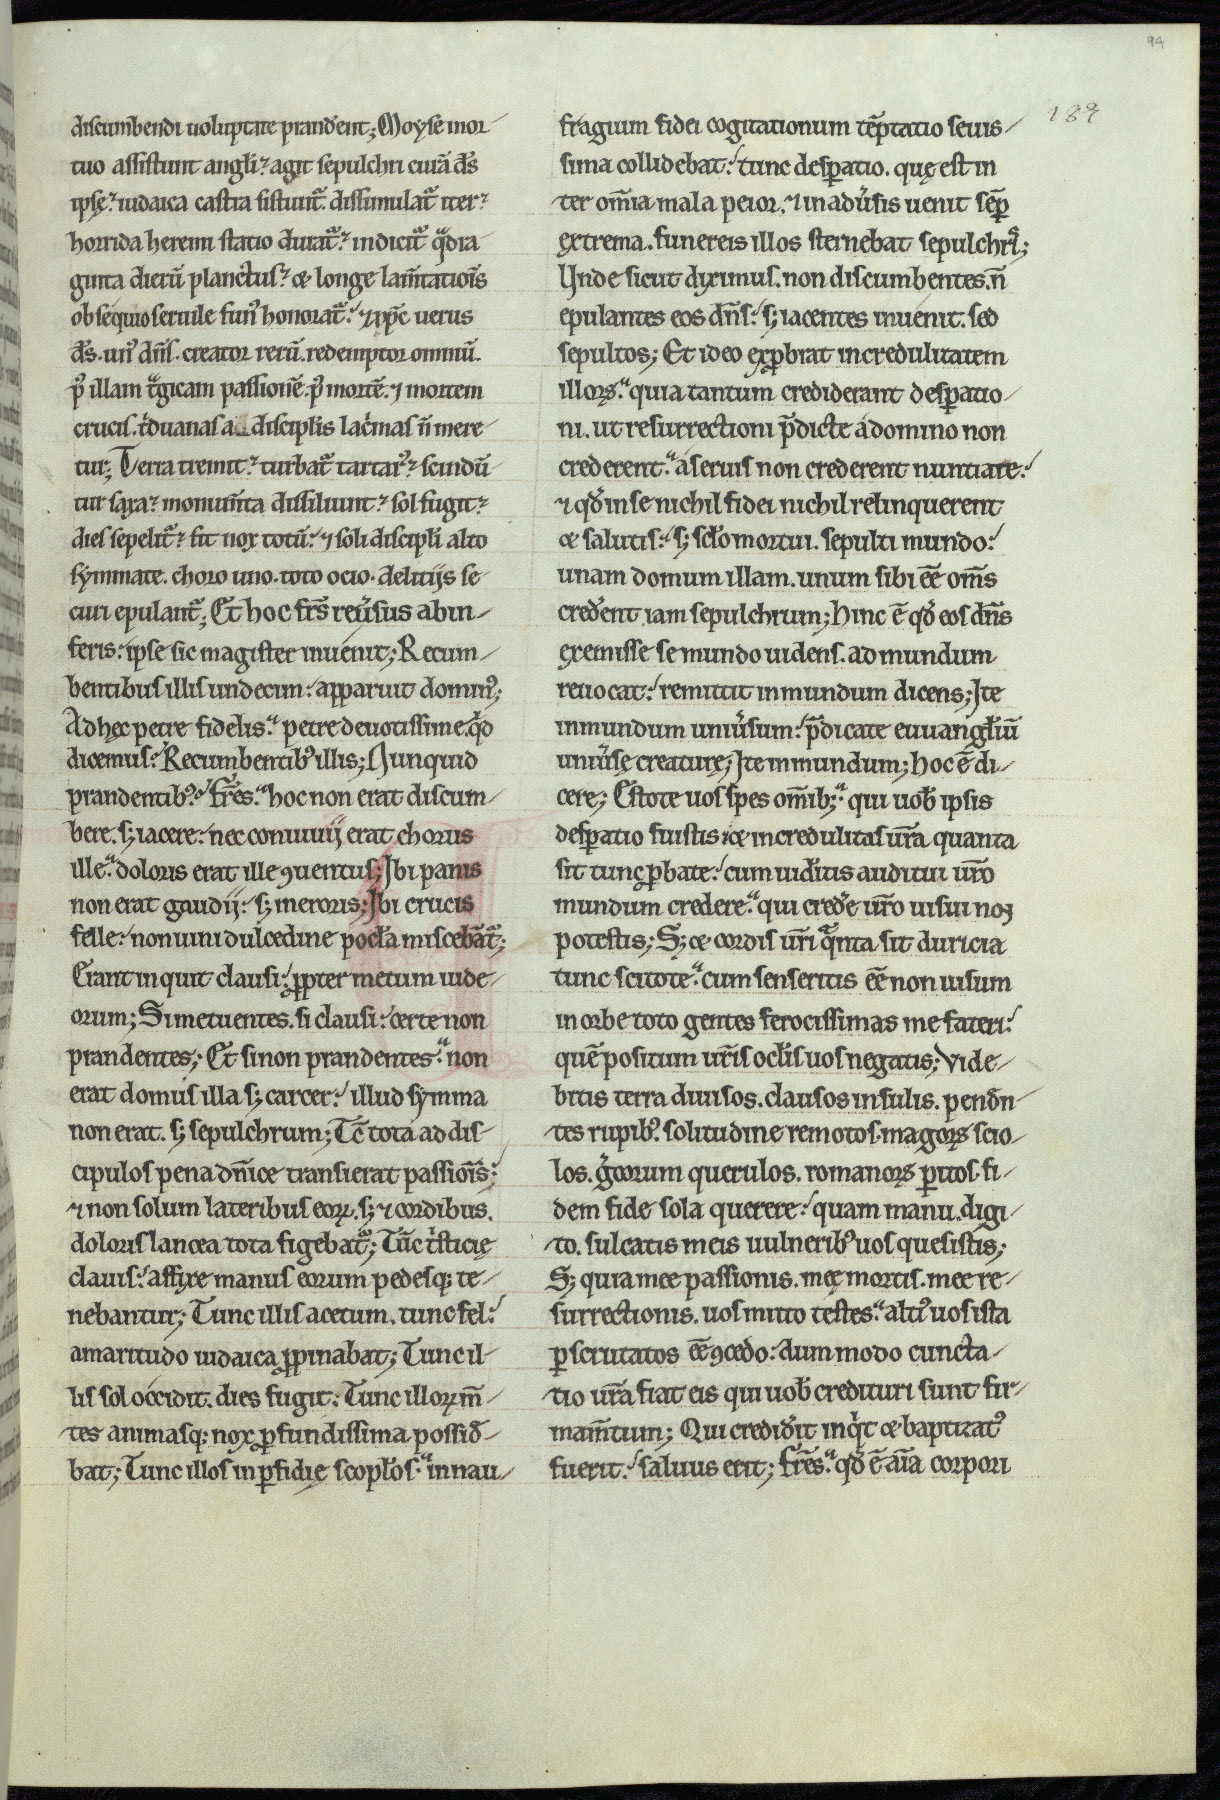 94
189
discumbendi uoluptate prandent; Moyse mor-
tuo assistunt angl̄i? agit sepulchri curā d̄s
ipsę? iudaica castra sistunt᷑. dissimulat᷑ iter?
horrida heremi statio durat᷑? indicit᷑ qͣdra
ginta dierū planctus? & longe lam̄tationis
obsequio seruile fun᷒ honorat᷑: ⁊ xp̄c uerus
d̄s. un᷒ dn̄s. creator rerū. redemptor omniū.
p᷒ illam tͣgicam passionē. p᷒ mortē. ⁊ mortem
crucis. tͥduanas a discipl̄is lacͥmas n̄ mere
tur; Terra tremit? turbat᷑ tartar᷒? scindū
tur saxa? monum̄ta dissiliunt? sol fugit?
dies sepelit᷑? fit nox totū: ⁊ soli discipl̄i alto
symmate. choro uno. toto ocio. delitijs se
curi epulant᷑; Et hoc frs̄ reūsus ab in-
feris: ipse sic magister inuenit; Recum-
bentibus illis undecim: apparuit domin᷒;
Ad hęc petre fidelis: petre deuotissime. qͥd
dicemus? Recumbentib᷒ illis; Nunquid
prandentib᷒? fr̄es: hoc non erat discum-
bere. s; iacere: nec conuiuij erat chorus
ille: doloris erat ille ꝯuentus; Ibi panis
non erat gaudij: s; meroris; Ibi crucis
felle: non uini dulcedine pocl̄a miscebāt᷑;
Erant inquit clausi: ꝓpter metum iude-
orum; Si metuentes. si clausi: certe non
prandentes; Et si non prandentes: non
erat domus illa s; carcer: illud symma
non erat. s; sepulchrum; Tc̄ tota ad dis-
cipulos pena dn̄ice transierat passiōis;
⁊ non solum lateribus eoꝝ. s; ⁊ cordibus.
doloris lancea tota figebat᷑; Tūc tͥsticię
clauis: affixe manus eorum pedesq; te-
nebantur; Tunc illis acetum. tunc fel:
amaritudo iudaica ꝓpinabat; Tunc il-
lis sol occidit. dies fugit; Tunc illoꝝ m̄-
tes animasq; nox ꝓfundissima possid̄-
bat; Tunc illos in ꝑfidię scopl̄os: in nau-
fragium fidei cogitationum tēptatio seuis-
sima collidebat: tunc desꝑatio. quę est in
ter om̄ia mala peior. ⁊ in adūsis uenit sēꝑ
extrema. funereis illos sternebat sepulchrͥ;
Unde sicut diximus. non discumbentes. n̄
epulantes eos dn̄s: s; iacentes inuenit. sed
sepultos; Et ideo exꝓbrat incredulitatem
illoꝝ: quia tantum crediderant desꝑatio-
ni. ut resurrectioni p̄dicte a domino non
crederent: a seruis non crederent nuntiate:
⁊ qd̄ in se nichil fidei nichil relinquerent
& salutis: s; scl̄o mortui. sepulti mundo:
unam domum illam. unum sibi eē om̄s
cred̄ent iam sepulchrum; Hinc ē qd̄ eos dn̄s
exemisse se mundo uidens. ad mundum
reuocat: remittit in mundum dicens; Ite
in mundum uniūsum: p̄dicate euuangl̄iū
uniūsę creaturę; Ite in mundum; Hoc ē di-
cere; Estote uos spes om̄ib;: qui uob̄ ipsis
desꝑatio fuistis. & incredulitas ur̄a quanta
sit tunc ꝓbate: cum uid̄itis auditui ur̄o
mundum credere: qui cred̄e ur̄o uisui noꝫ
potestis; S; & cordis ur̄i qͣnta sit duricia
tunc scitote: cum senseritis eē non uisum
in orbe toto gentes ferocissimas me fateri:
quē positum ur̄is ocl̄is uos negatis; Vide-
bitis terra diuisos. clausos insulis. pend̄n-
tes rupib᷒. solitudine remotos. magoꝝ scio-
los. gͤcorum querulos. romanoꝝ ꝑitos. fi-
dem fide sola querere: quam manu. digi-
to. sulcatis meis uulnerib᷒ uos quesistis;
S; quia mee passionis. meę mortis. mee re-
surrectionis. uos mitto testes: alti᷒ uos ista
ꝑscrutatos eē ꝯcedo: dummodo cuncta-
tio ur̄a fiat eis qui uob̄ credituri sunt fir-
mam̄tum; Qui credid̄it inqͥt & baptizat᷒
fuerit: saluus erit; fr̄es: qd̄ ē aīa corpori